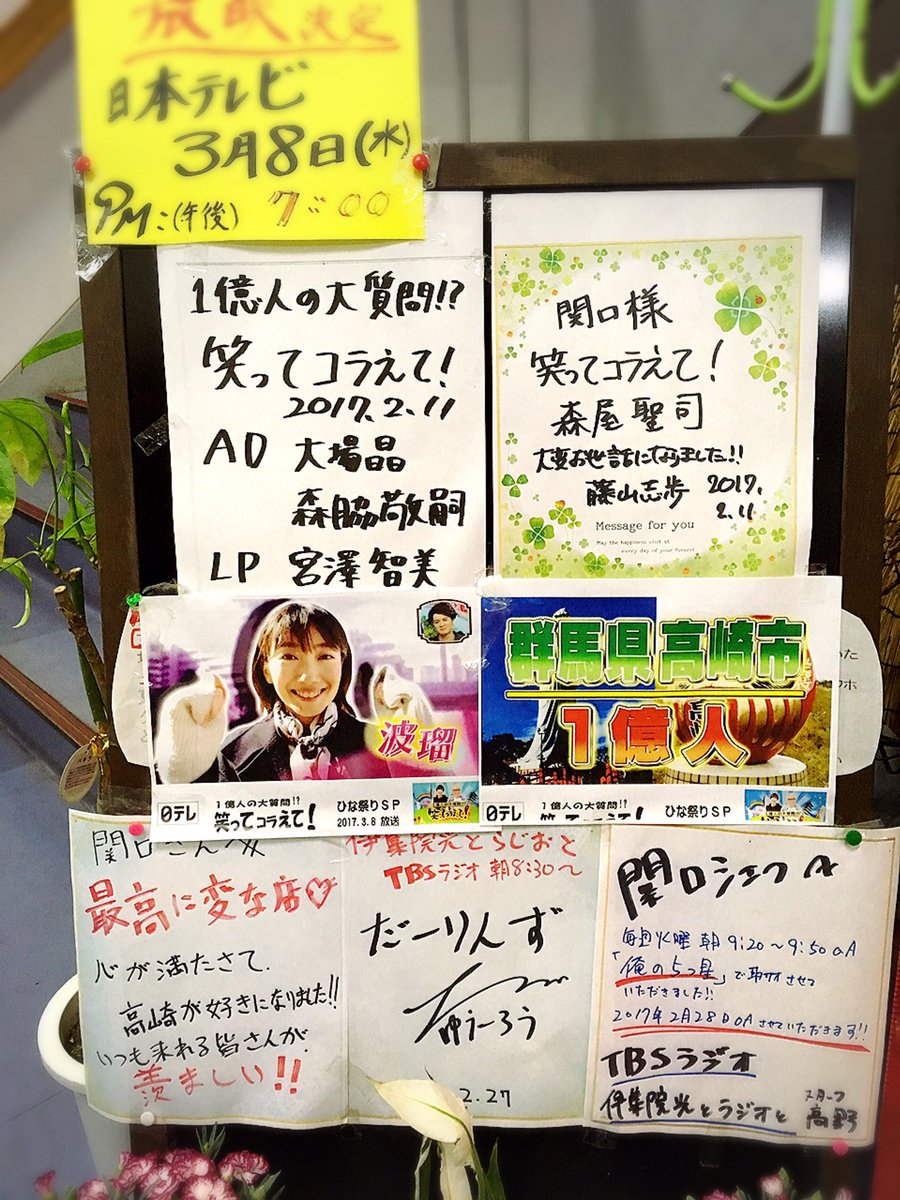 放映決定
日本テレビ
3月8日(水)
PM:(午後) 7:00
1億人の大質問!?
笑ってコラえて!
2017.2.11
AD 大場晶
森脇敬嗣
LP 宮澤智美
関口様
笑ってコラえて!
森屋聖司
大変お世話になりました!!
藤山志歩 2017.
2.11
Message for you
May the happiness visit at
every day of your future!
波瑠
日テレ
1億人の大質問!?
笑ってコラえて!
ひな祭りSP
2017.3.8 放送
群馬県高崎市
1億人
日テレ
1億人の大質問!?
笑ってコラえて!
ひな祭りSP
関口さん
最高に変な店♡
心が満たさて、
高崎が好きになりました!!
いつも来れる皆さんが、
羨ましい!!
伊集院光とらじおと
TBSラジオ 朝8:30〜
だーりんず
ゆうーろう
2.27
関口シェフ
毎週火曜 朝9:20〜9:50 OA
「俺の5つ星」で取材させて
いただきました!!
2017年2月28日OAさせていただきます!!
TBSラジオ
伊集院光とラジオと
スタッフ
高野